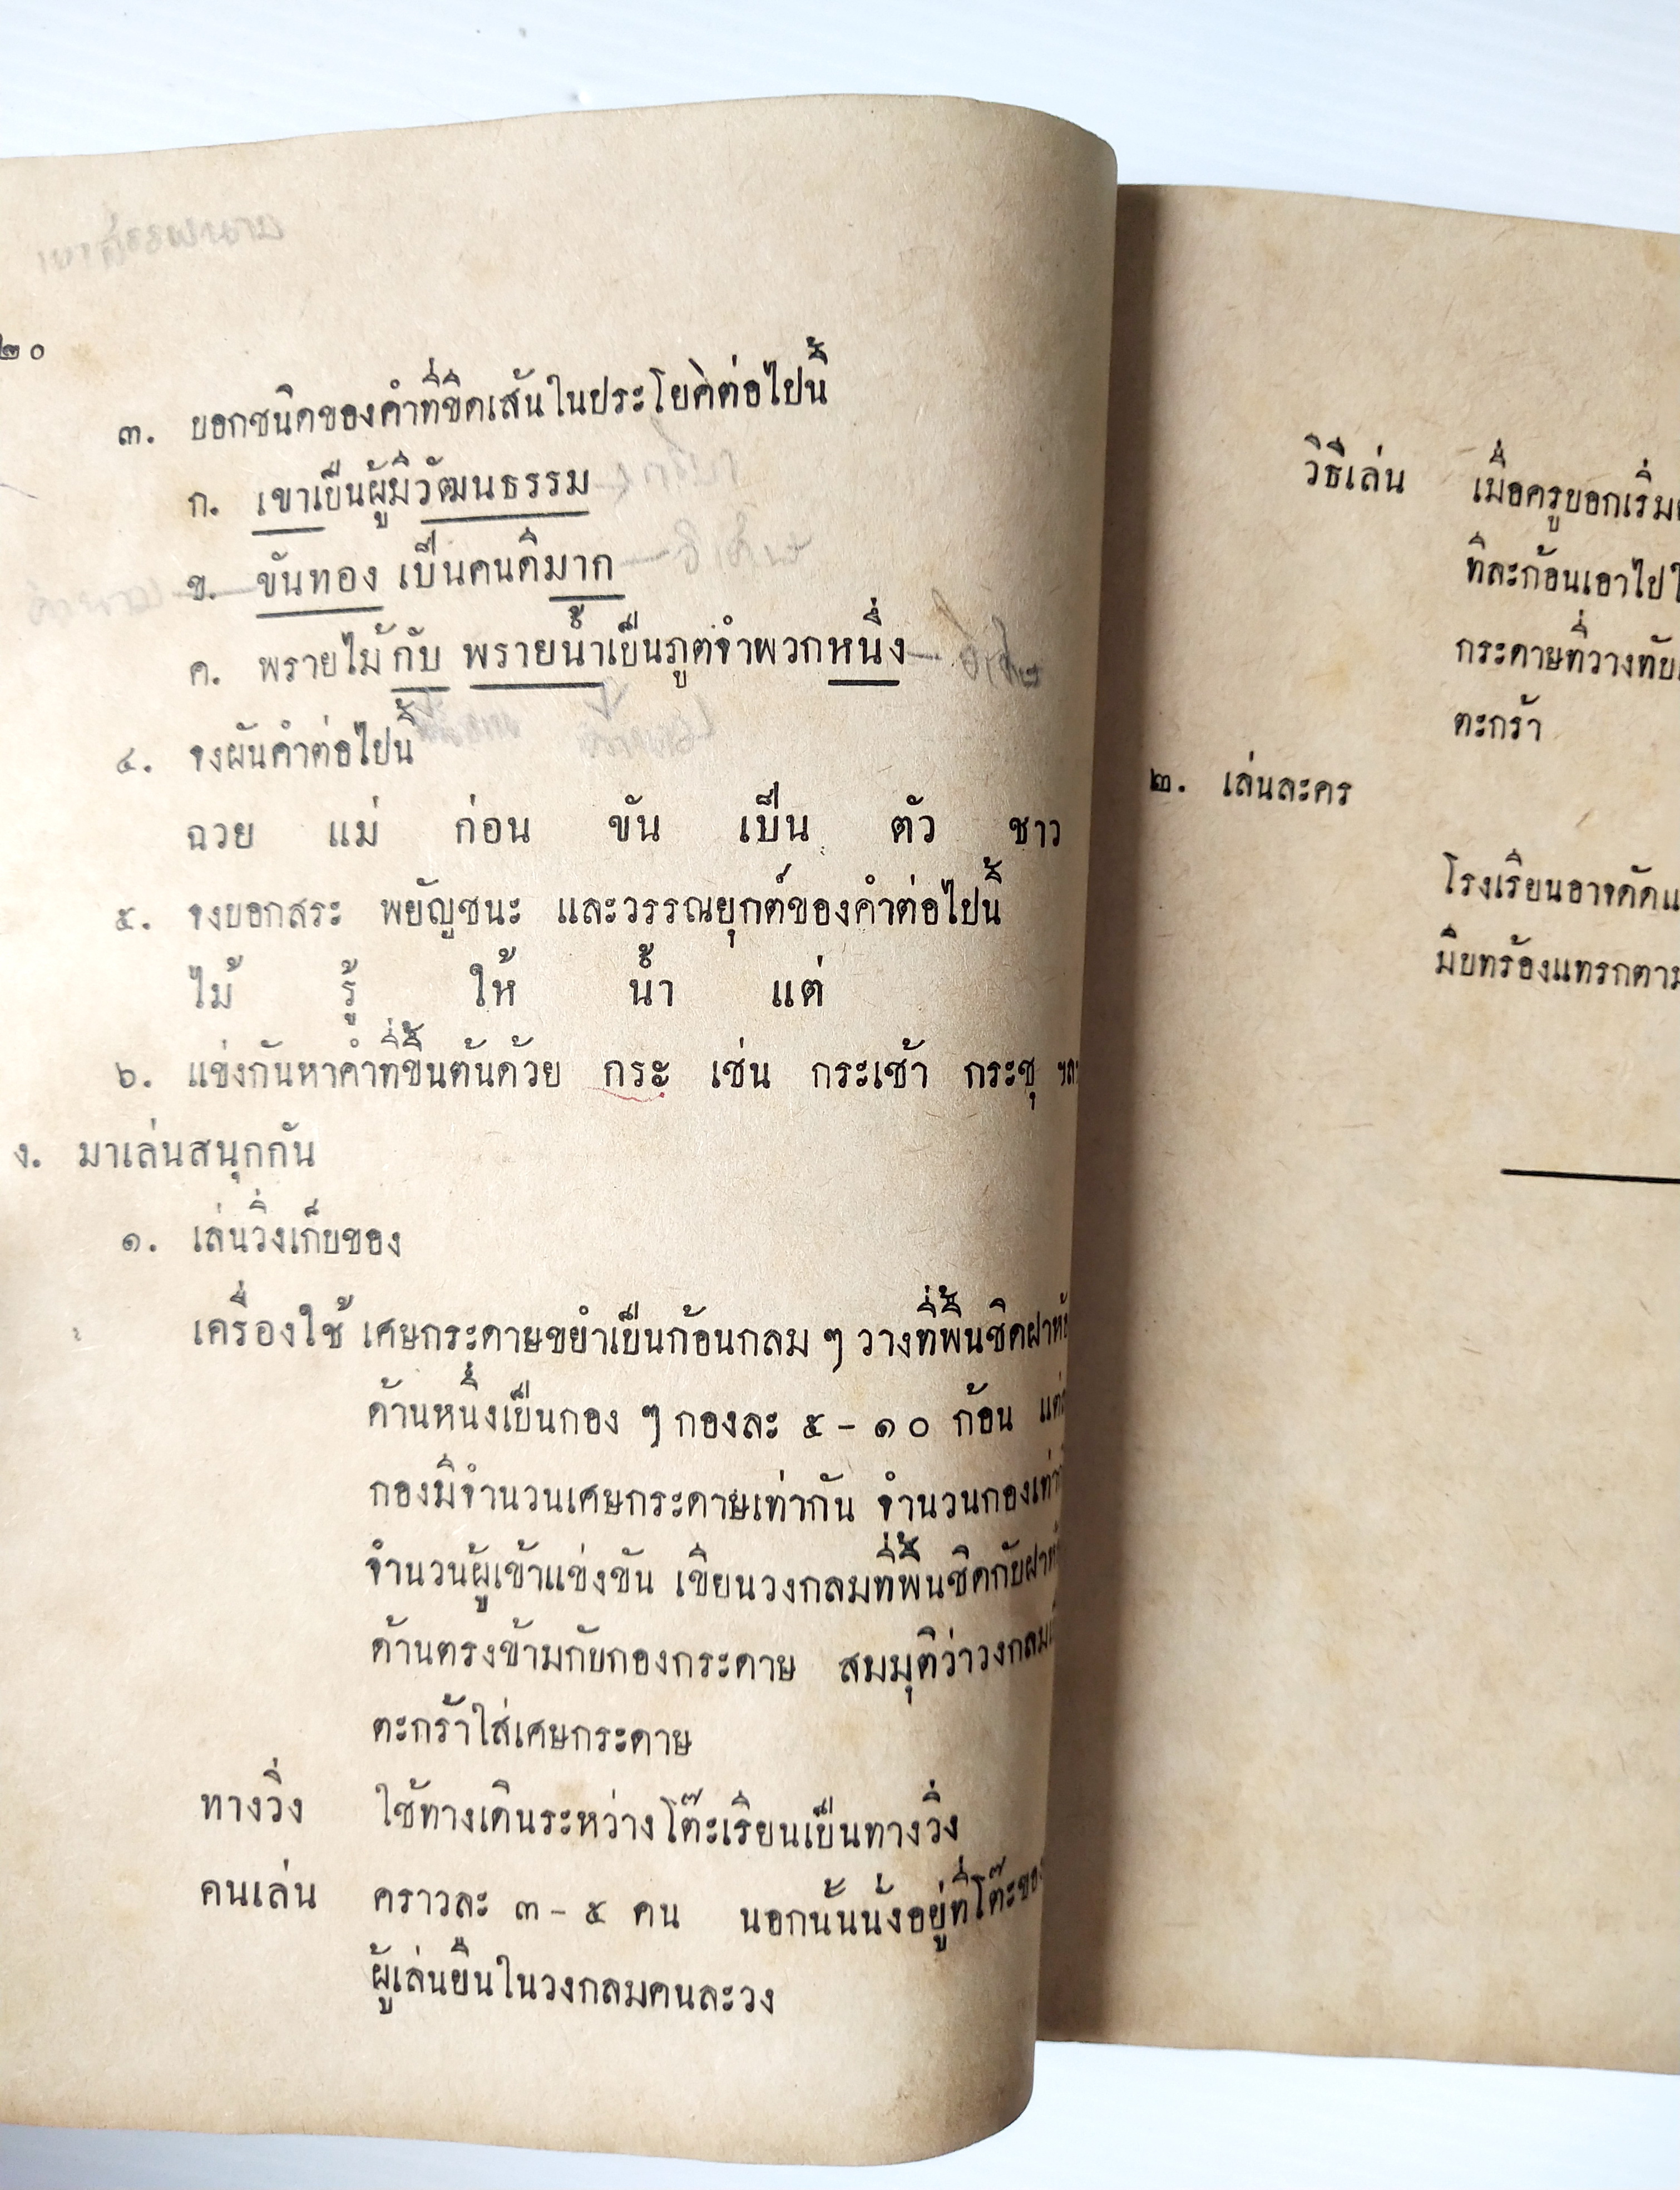 ๒๐
๓. บอกชนิดของคำที่ขีดเส้นในประโยคต่อไปนี้
ก. เขาเป็นผู้มีวัฒนธรรม
ข. ขันทอง เป็นคนดีมาก
ค. พรายไม้กับ พรายน้ำเป็นภูตจำพวกหนึ่ง
๔. จงผันคำต่อไปนี้
ฉวย แม่ ก่อน ขัน เป็น ตัว ชาว
๕. จงบอกสระ พยัญชนะ และวรรณยุกต์ของคำต่อไปนี้
ไม้ รู้ ให้ น้ำ แต่
๖. แข่งกันหาคำที่ขึ้นต้นด้วย กระ เช่น กระเช้า กระชุ
ง. มาเล่นสนุกกัน
๑. เล่นวิ่งเก็บของ
เครื่องใช้ เศษกระดาษขยำเป็นก้อนกลม ๆ วางที่พื้นชิดฝา
ด้านหนึ่งเป็นกอง ๆ กองละ ๕ - ๑๐ ก้อน
กองมีจำนวนเศษกระดาษเท่ากัน จำนวนกอง
จำนวนผู้เข้าแข่งขัน เขียนวงกลมที่พื้นชิดกับฝา
ด้านตรงข้ามกับกองกระดาษ สมมุติว่าวงกลม
ตะกร้าใส่เศษกระดาษ
ทางวิ่ง ใช้ทางเดินระหว่างโต๊ะเรียนเป็นทางวิ่ง
คนเล่น คราวละ ๓ - ๕ คน นอกนั้นนั่งอยู่ที่โต๊ะ
ผู้เล่นยืนในวงกลมคนละวง
วิธีเล่น เมื่อครูบอกเริ่ม
ทีละก้อนเอาไป
กระดาษที่วาง
ตะกร้า
๒. เล่นละคร
โรงเรียนอาจดัด
มีบทร้องแทรกตาม